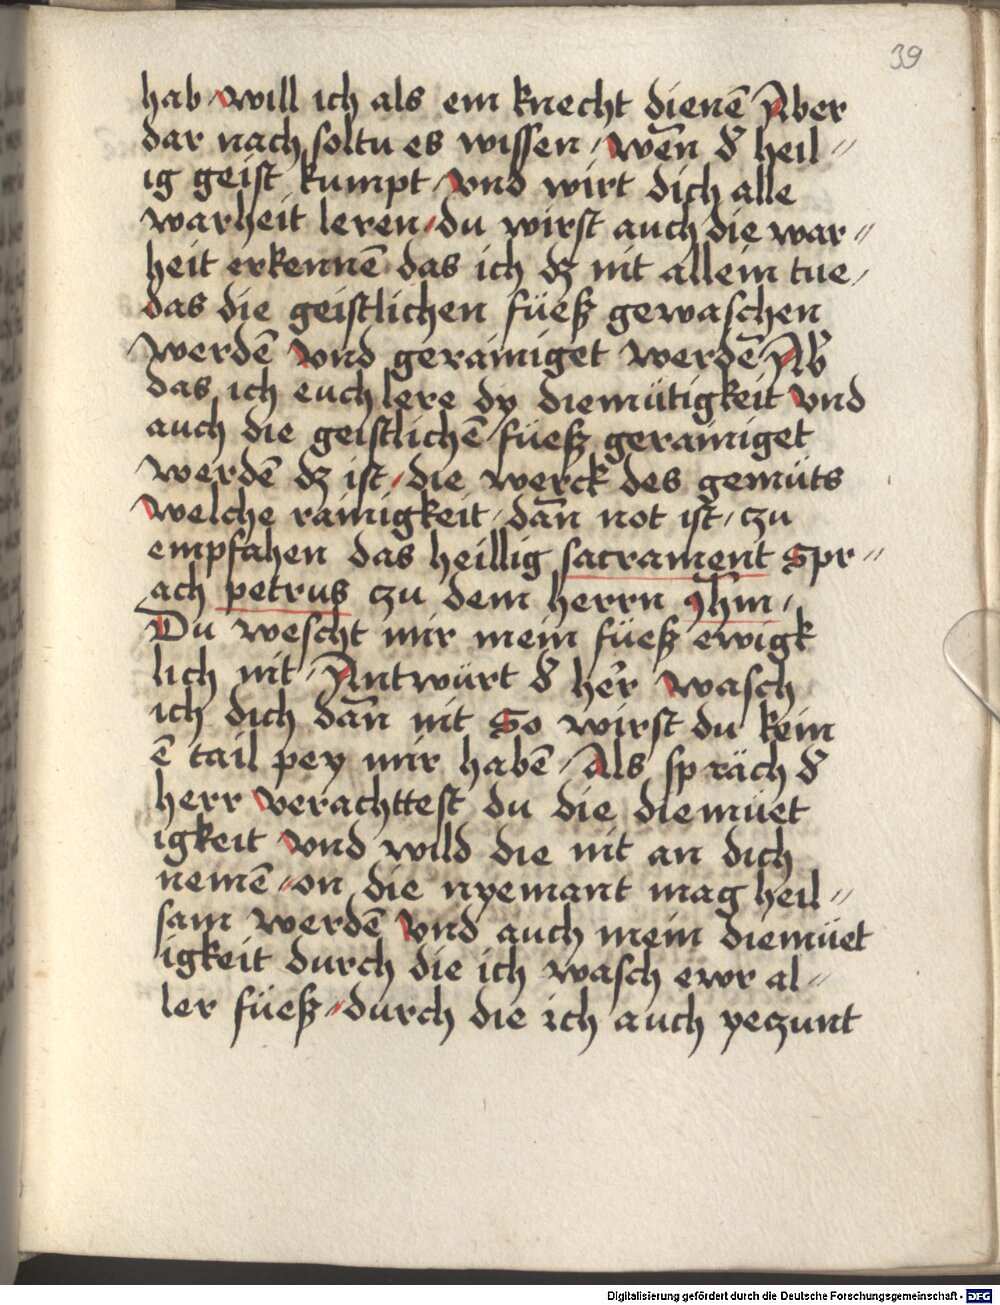 39
hab / will ich als ein knecht dienē Aber
dar nach soltu es wissen / wen̄ d͛ heil //
ig geist kumpt / vnd wirt dich alle
warheit leren / du wirst auch die war //
heit erkennē das ich dz nit allein tue /
das die geistlichen füesz gewaschen
werdē vnd gerainiget werdē Ab͛
das ich euch lere dy diemütigkeit vnd
auch die geistlichē füesz gerainiget
werdē dz ist / die werck des gemüts
welche rainigkeit / dan̄ not ist / czu
empfahen das heillig sacrament Spr //
ach petrus czu dem herrn yhm̄ /
Du wescht mir mein füesz ewigk
lich nit / Antwürt d͛ her̄ wasch
ich dich dan̄ nit So wirst du kein
ē tail pey mir habē / Als spräch d͛
herr verachttest du die diemüet
igkeit vnd wild die nit an dich
nemē / on die nyemant mag heil //
sam werdē vnd auch mein diemüet
igkeit durch die ich wasch ewr al //
ler füesz / durch die ich auch yeczunt
Digitalisierung gefördert durch die Deutsche Forschungsgemeinschaft - DFG